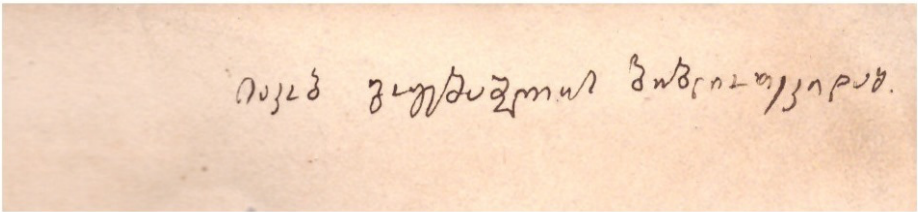 იაკობ გოგებაშვილის ბიბლიოთეკიდამ.